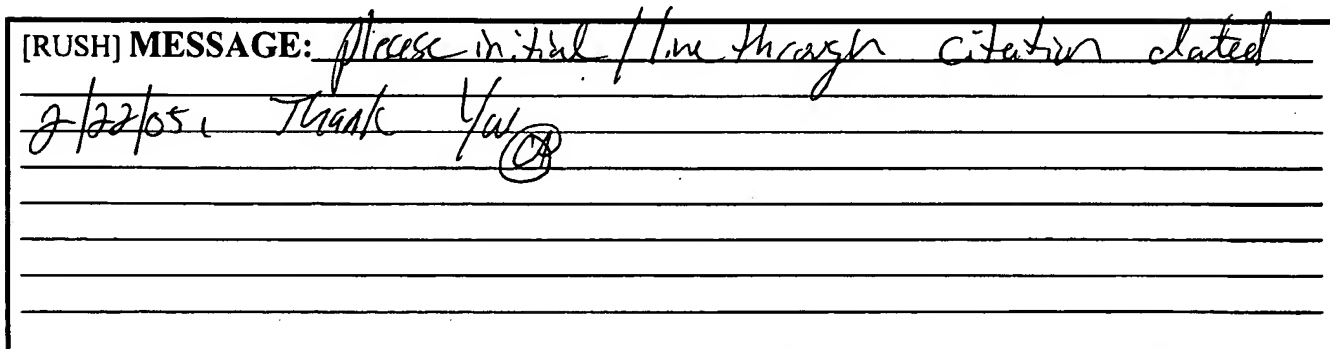 [RUSH] MESSAGE: Please initial / line through citation dated
2/22/05. Thank You